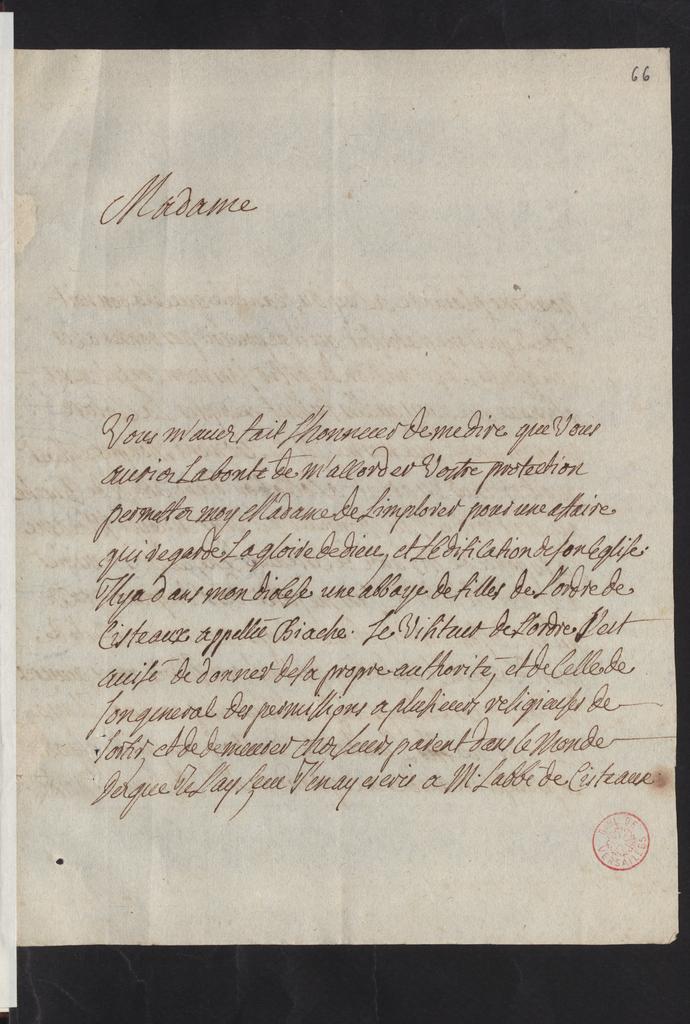 66
Madame
Vous m'avez fait l'honneur de me dire que Vous
auriez La bonté de m'accorder Vostre protection
permettez moy Madame de L'implorer pour une affaire
qui regarde La gloire de dieu, et L'edification de son Eglise.
Il y a dans mon diocese une abbaye de filles de L'ordre de
Cisteaux appellée Biache. Le Visiteur de L'ordre s'est
avisé de donner de sa propre authorité, et de Celle de
son general des permissions a plusieurs religieuses de
sortir et de demeurer chez leurs parent dans le Monde
Des que Je L'ay sceu J'en ay escris a Mr. L'abbé de Cisteaux
BIBL. DE VERSAILLES